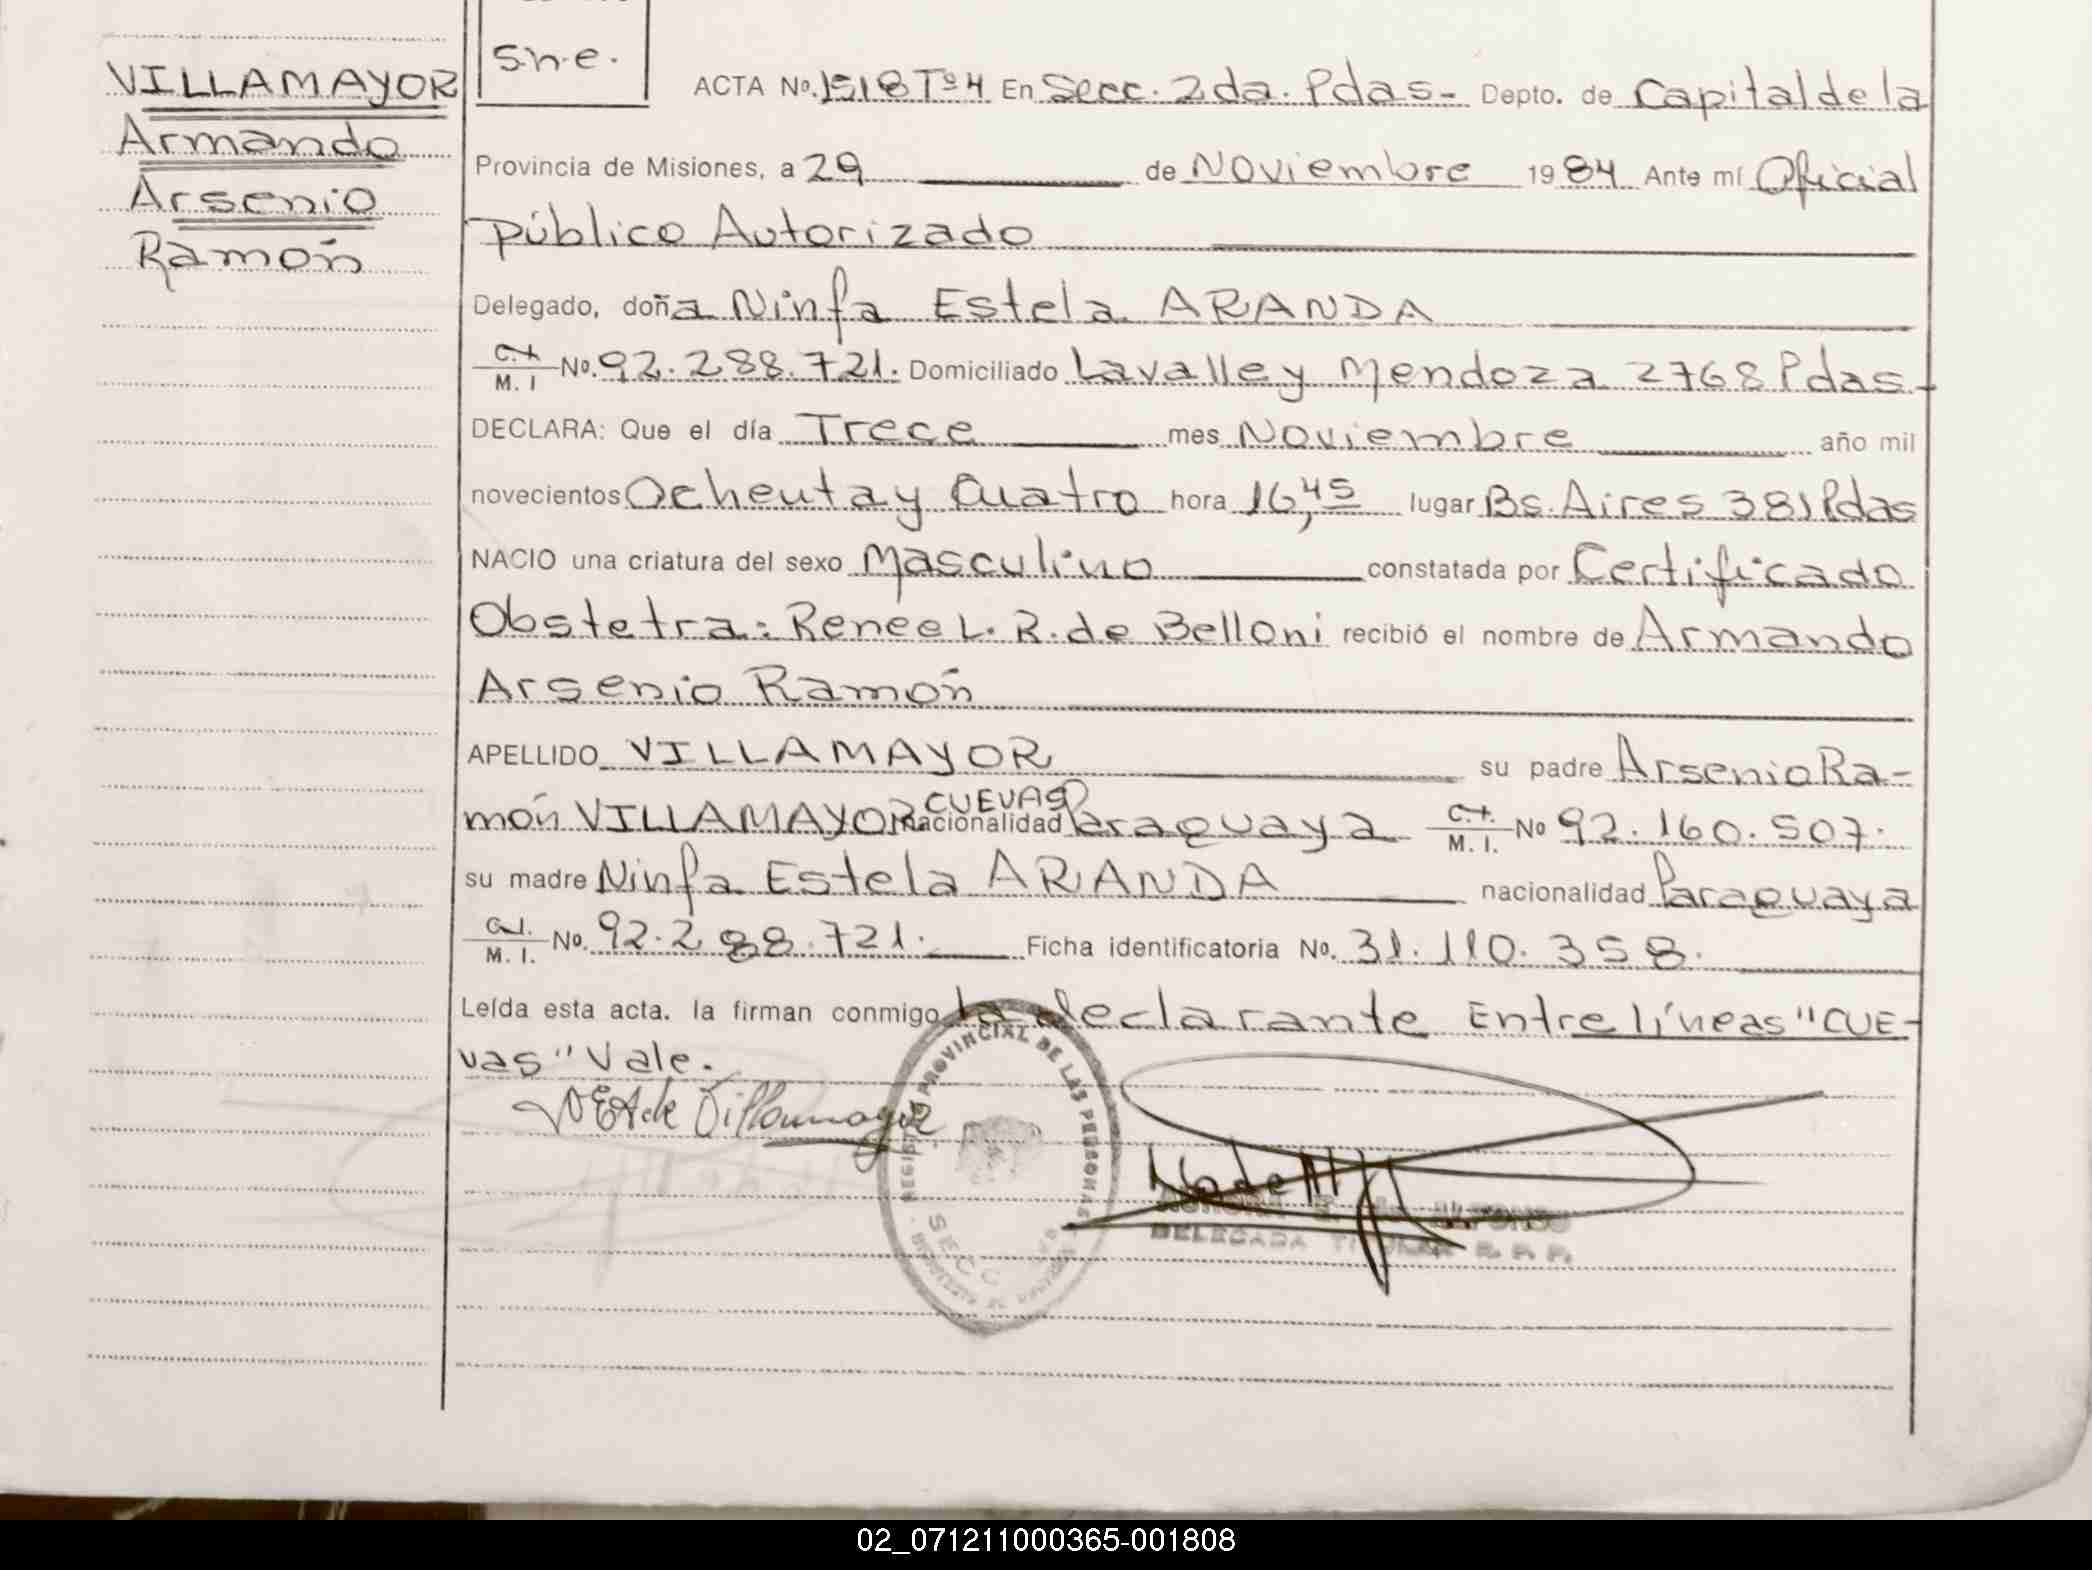 s.n.e.
VILLAMAYOR
Armando
Arsenio
Ramón
ACTA No. 1518 Tº 4 En Secc. 2da. Pdas- Depto. de Capital de la
Provincia de Misiones, a 29 de Noviembre 1984 Ante mí Oficial
Público Autorizado
Delegado, doña Ninfa Estela ARANDA
C.I. M. I No. 92.288.721. Domiciliado Lavalle y Mendoza 2768 Pdas-
DECLARA: Que el día Trece mes Noviembre año mil
novecientos Ochenta y Cuatro hora 16,45 lugar Bs. Aires 381 Pdas
NACIO una criatura del sexo Masculino constatada por Certificado
Obstetra: Renee L. R. de Belloni recibió el nombre de Armando
Arsenio Ramón
APELLIDO VILLAMAYOR su padre Arsenio Ra-
món VILLAMAYOR CUEVAS nacionalidad Paraguaya C.I. M. I. No 92.160.507.
su madre Ninfa Estela ARANDA nacionalidad Paraguaya
C.I. M. I. No. 92.288.721. Ficha identificatoria No. 31.110.358.
Leída esta acta. la firman conmigo la declarante Entre líneas "CUE-
vas" Vale.
NEA de Villamayor
REGISTRO PROVINCIAL DE LAS PERSONAS
SECC
DELEGADA TITULAR R. P. P.
02_071211000365-001808